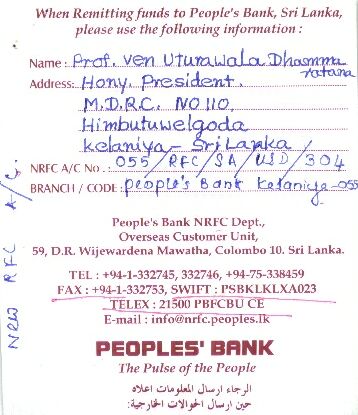 When Remitting funds to People's Bank, Sri Lanka,
please use the following information :
Name : Prof. Ven Uturawala Dhamma
ratana
Address: Hony. President.
M.D.R.C. NO 110.
Himbutuwelgoda
Kelaniya - Sri Lanka
NRFC A/C No. : 055/RFC/SA/USD/304
BRANCH / CODE : People's Bank Kelaniya-055
NEW RFC A/C.
People's Bank NRFC Dept.,
Overseas Customer Unit,
59, D.R. Wijewardena Mawatha, Colombo 10. Sri Lanka.
TEL : +94-1-332745, 332746, +94-75-338459
FAX : +94-1-332753, SWIFT : PSBKLKLXA023
TELEX : 21500 PBFCBU CE
E-mail : info@nrfc.peoples.lk
PEOPLES' BANK
The Pulse of the People
الرجاء ارسال المعلومات اعلاه
حين ارسال الحوالات الخارجية: